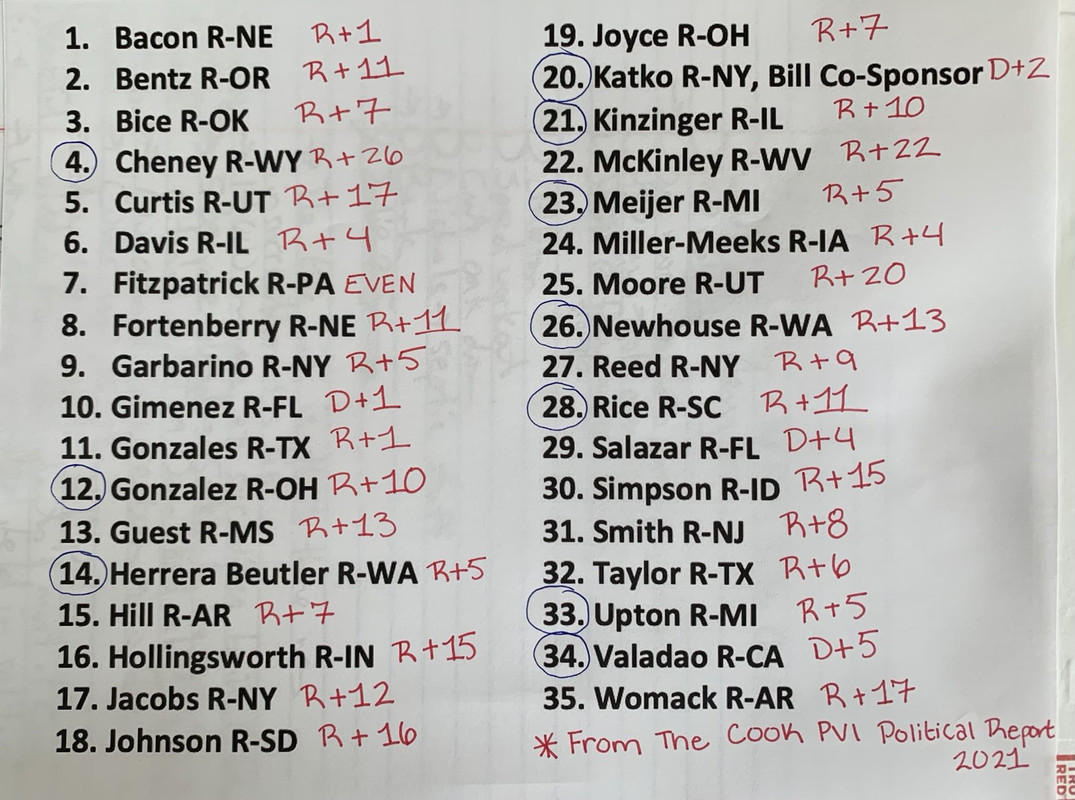 1. Bacon R-NE R+1
2. Bentz R-OR R+11
3. Bice R-OK R+7
4. Cheney R-WY R+26
5. Curtis R-UT R+17
6. Davis R-IL R+4
7. Fitzpatrick R-PA EVEN
8. Fortenberry R-NE R+11
9. Garbarino R-NY R+5
10. Gimenez R-FL D+1
11. Gonzales R-TX R+1
12. Gonzalez R-OH R+10
13. Guest R-MS R+13
14. Herrera Beutler R-WA R+5
15. Hill R-AR R+7
16. Hollingsworth R-IN R+15
17. Jacobs R-NY R+12
18. Johnson R-SD R+16
19. Joyce R-OH R+7
20. Katko R-NY, Bill Co-Sponsor D+2
21. Kinzinger R-IL R+10
22. McKinley R-WV R+22
23. Meijer R-MI R+5
24. Miller-Meeks R-IA R+4
25. Moore R-UT R+20
26. Newhouse R-WA R+13
27. Reed R-NY R+9
28. Rice R-SC R+11
29. Salazar R-FL D+4
30. Simpson R-ID R+15
31. Smith R-NJ R+8
32. Taylor R-TX R+6
33. Upton R-MI R+5
34. Valadao R-CA D+5
35. Womack R-AR R+17
* From The Cook PVI Political Report
2021
RED